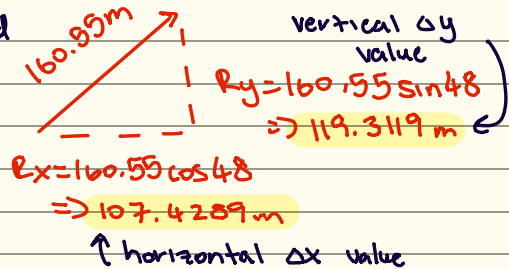 d
160.55m
vertical Δy
value
Ry=160.55sin48
=> 119.3119 m
Rx=160.55cos48
=> 107.4289m
↑ horizontal Δx value